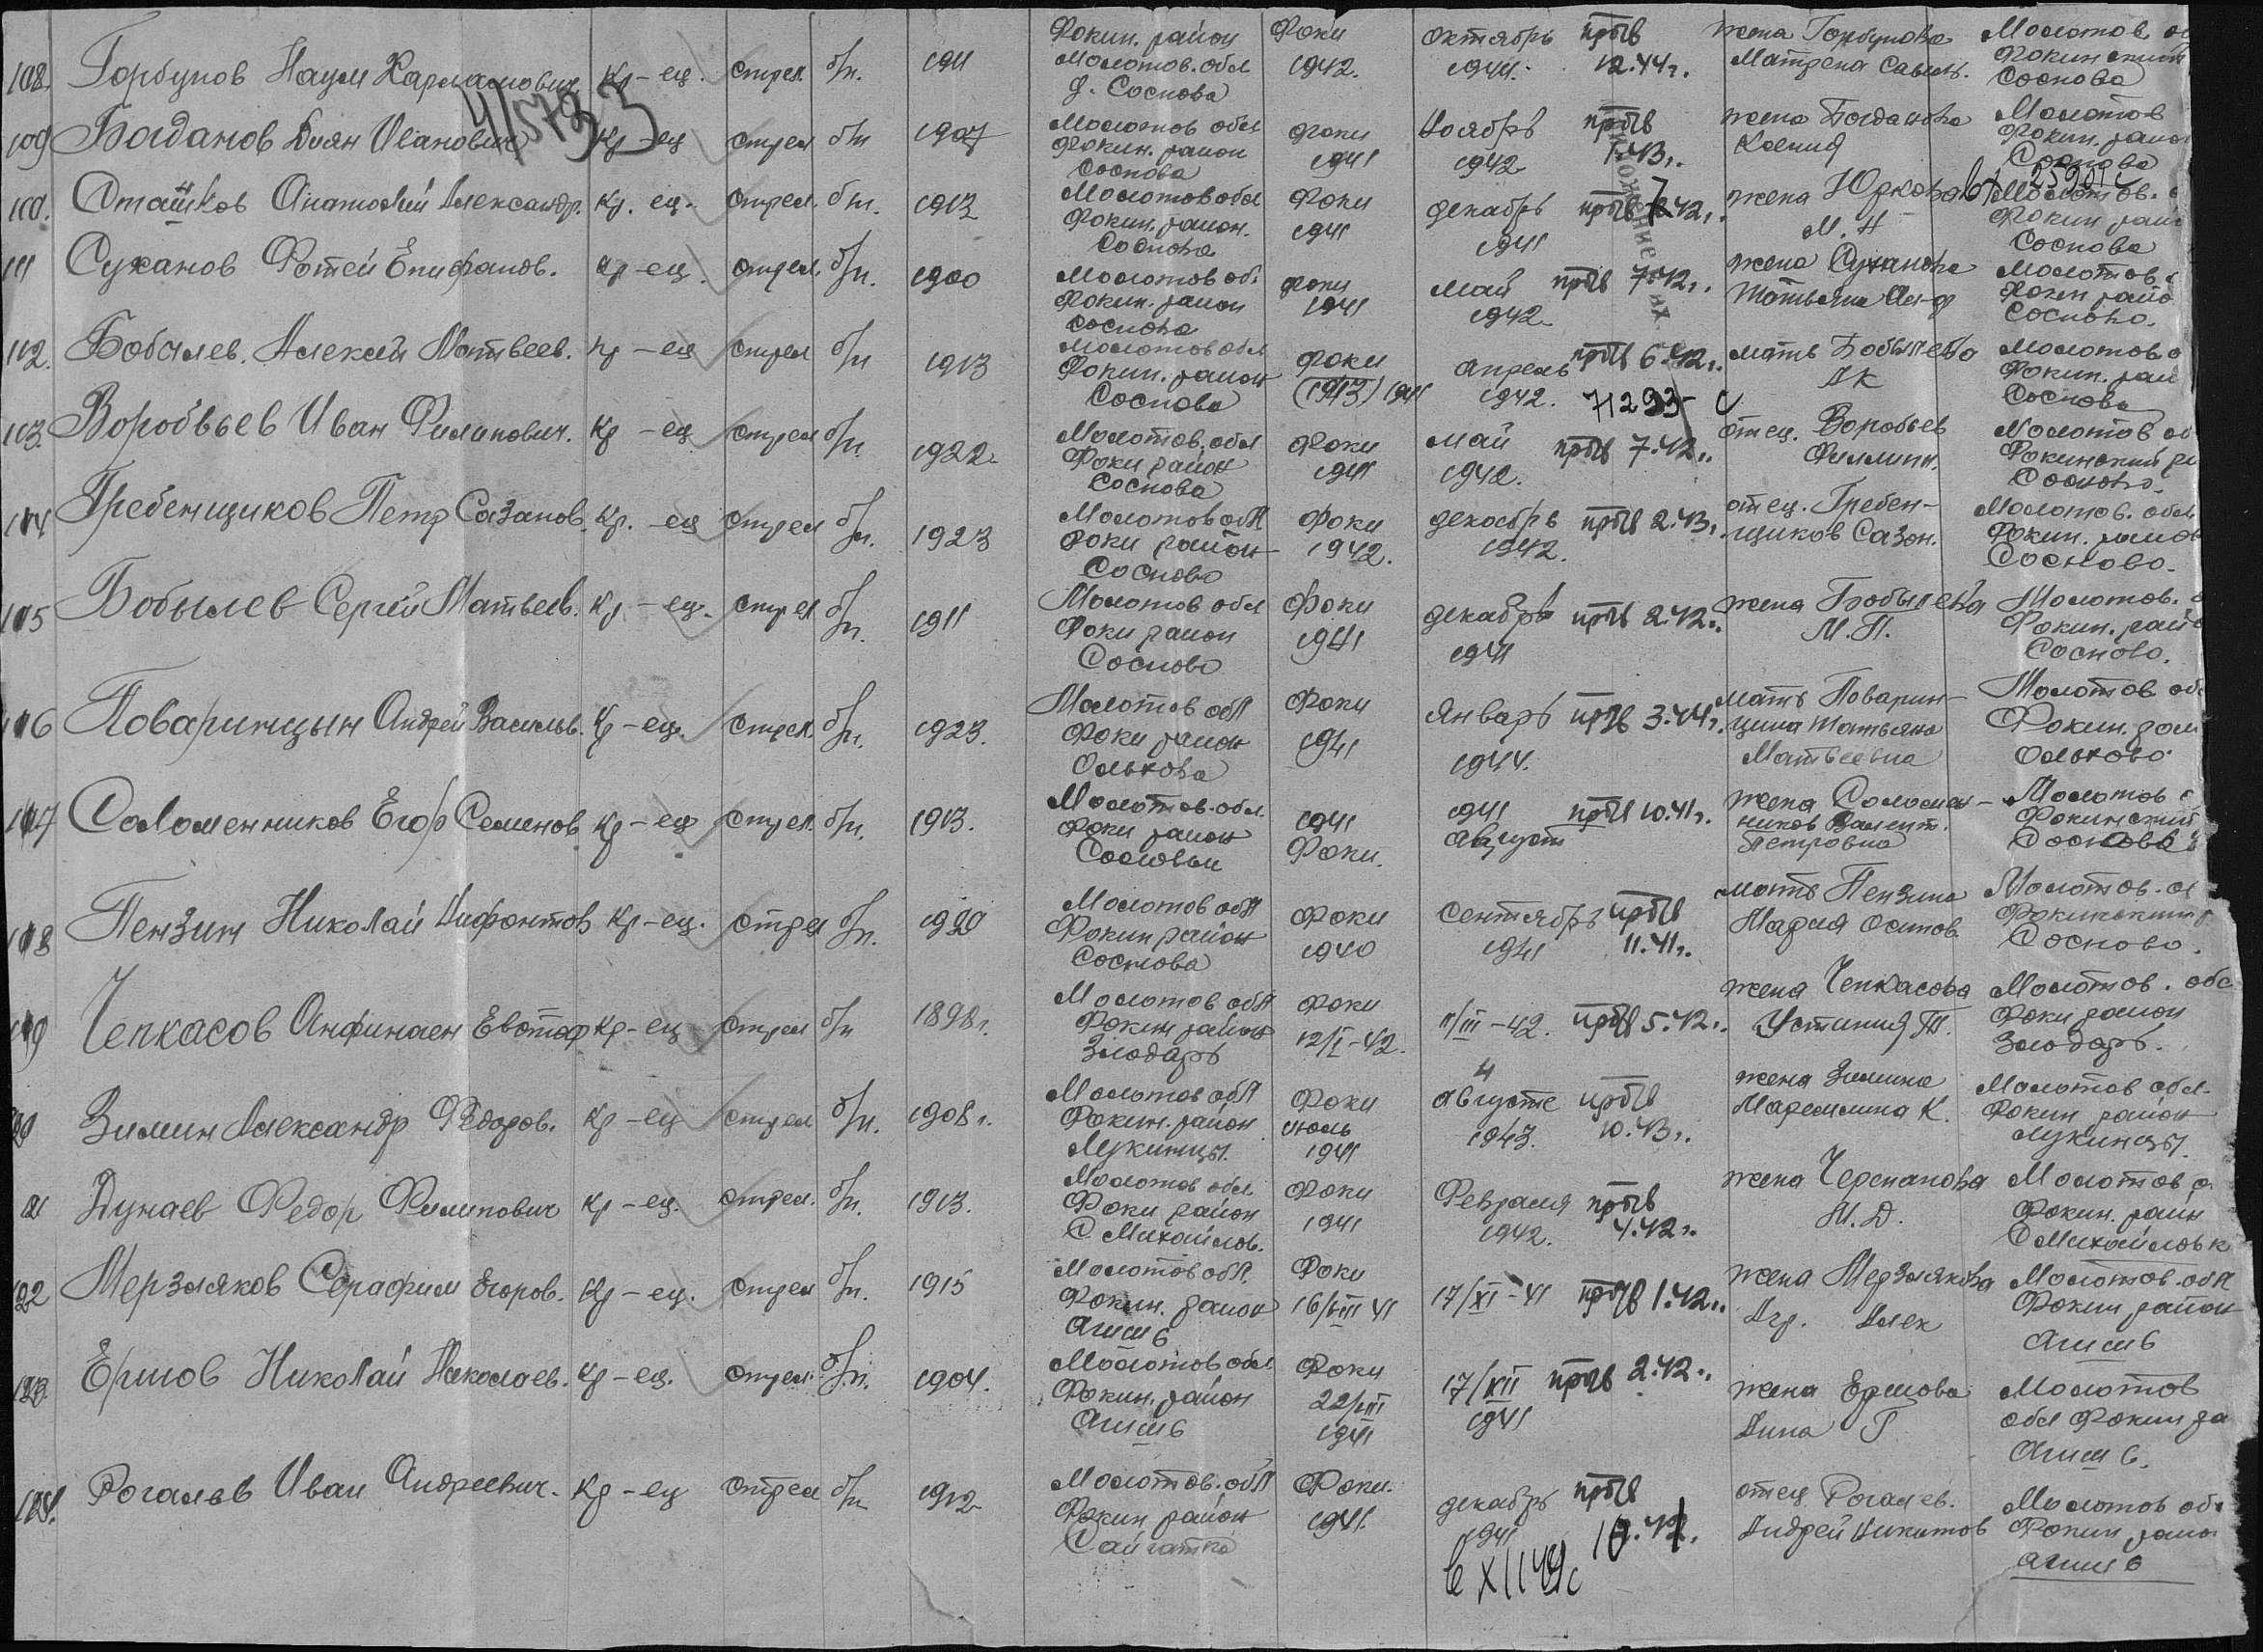 108. Горбунов Наум Хармамович Кр-ец. стрел. б/п. 1911 Фокин. район Молотов. обл д. Соснова Фоки 1942. октябрь 1944. пр бв 12.44 г. жена Горбунова Матрена Савель. Молотов. о Фокинский Соснова
4/5793
109 Богданов Диян Иванович Кр-ец стрел б/п 1907 Молотов обл Фокин. район Соснова Фоки 1941 Ноябрь 1942 пр бв 1.43 г. жена Богданова Ксения Молотов Фокин. район Соснова
110. Сташков Анатолий Александр. Кр. ец. стрел. б/п. 1913 Молотов обл Фокин. район. Соснова Фоки 1941 декабрь 1941 пр бв 42 г. жена Юркова М. Н Молотов. Фокин. рай Соснова
111 Суханов Фотей Епифанов. Кр-ец. стрел. б/п. 1900 Молотов об. Фокин. район Соснова Фоки 1941 май 1942 пр бв 7.42 г. жена Суханова Татьяна Молотов. Фокин райо Сосново.
112. Бобылев. Алексей Матвеев. Кр-ец стрел б/п 1913 Молотов обл Фокин. район Соснова Фоки (1913) 1941 апрель 1942. пр бв 6.42 г. мать Бобылева А К Молотов о Фокин. рай Соснова
71293 с
113. Воробьев Иван Филипович. Кр-ец стрел б/п 1922 Молотов. обл Фоки район Соснова Фоки 1941 май 1942. пр бв 7.42 г. отец. Воробьев Филипп. Молотов об Фокинский ра Сосново.
114 Гребенщиков Петр Сазанов. Кр.-ец стрел б/п. 1923 Молотов обл Фоки район Сосново Фоки 1942. декабрь 1942. пр бв 2.43 г. отец. Гребенщиков Сазон. Молотов. обл. Фокин. район Сосново.
115 Бобылев Сергей Матвеев. Кр-ец. стрел б/п. 1911 Молотов обл Фоки район Сосново Фоки 1941 декабрь 1941 пр бв 2.42 г. жена Бобылева М. П. Молотов. о Фокин. рай Сосново.
116 Поваринцын Андрей Васильв. Кр-ец. стрел. б/п. 1923. Молотов обл Фоки район Ольхова Фоки 1941 Январь 1944. пр бв 3.44 г. мать Поваринцина Татьяна Матвеевна Молотов об Фокин. рай Ольхово
117 Соломенников Егор Семенов Кр-ец стрел. б/п. 1913. Молотов. обл. Фоки район Сосновы 1941 Фоки. 1941 август пр бв 10.41 г. жена Соломенников Валент. Петровна Молотов о Фокинский Соснова
118 Пензин Николай Нифонтов Кр-ец. стрел б/п. 1920 Молотов обл Фокин район Соснова Фоки 1940 Сентябрь 1941 пр бв 11.41 г. мать Пензина Мария Осипов. Молотов. о Фокинский Сосново.
119 Чепкасов Анфиноген Евстар Кр-ец стрел б/п 1898 г. Молотов обл Фокин район Злодарь Фоки 12/I-42. 11/III-42. пр бв 5.42 г. жена Чепкасова Устиния Т. Молотов. обл Фоки район Злодарь.
120 Зимин Александр Федоров. Кр-ец стрел б/п. 1908 г. Молотов обл Фокин. район Лукинцы. Фоки июль 1941 4 августе 1943. пр бв 10.43 г. жена Зимина К. Молотов обл. Фокин район Лукинцы.
21 Дунаев Федор Филипович Кр-ец. стрел. б/п. 1913. Молотов обл. Фоки район С. Михайлов. Фоки 1941 Февраля 1942. пр бв 4.42 г. жена Черепанова Молотов о Фокин. райн С Михайловк
122 Мерзляков Серафим Егоров. Кр-ец. стрел б/п. 1915 Молотов обл. Фокин. район Альш б Фоки 16/VIII 41 17/XI-41 пр бв 1.42 г. жена Мерзлякова Агр. Алек Молотов. обл Фокин район
123. Ершов Николай Николаев. Кр-ец. стрел. б/п. 1904. Молотов обл Фокин. район Фоки 22/VIII 1941 17/XII 1941 пр бв 2.42 г. жена Ершова Анна Г Молотов обл Фокин ра
124. Рогалев Иван Андреевич. Кр-ец стрел б/п 1912 Молотов. обл Фокин район Сайгатка Фоки. 1941. декабрь 1941 пр бв отец Рогалев. Андрей Никитов Молотов об Фокин район